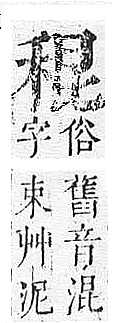 俗
字
舊音混
束艸泥